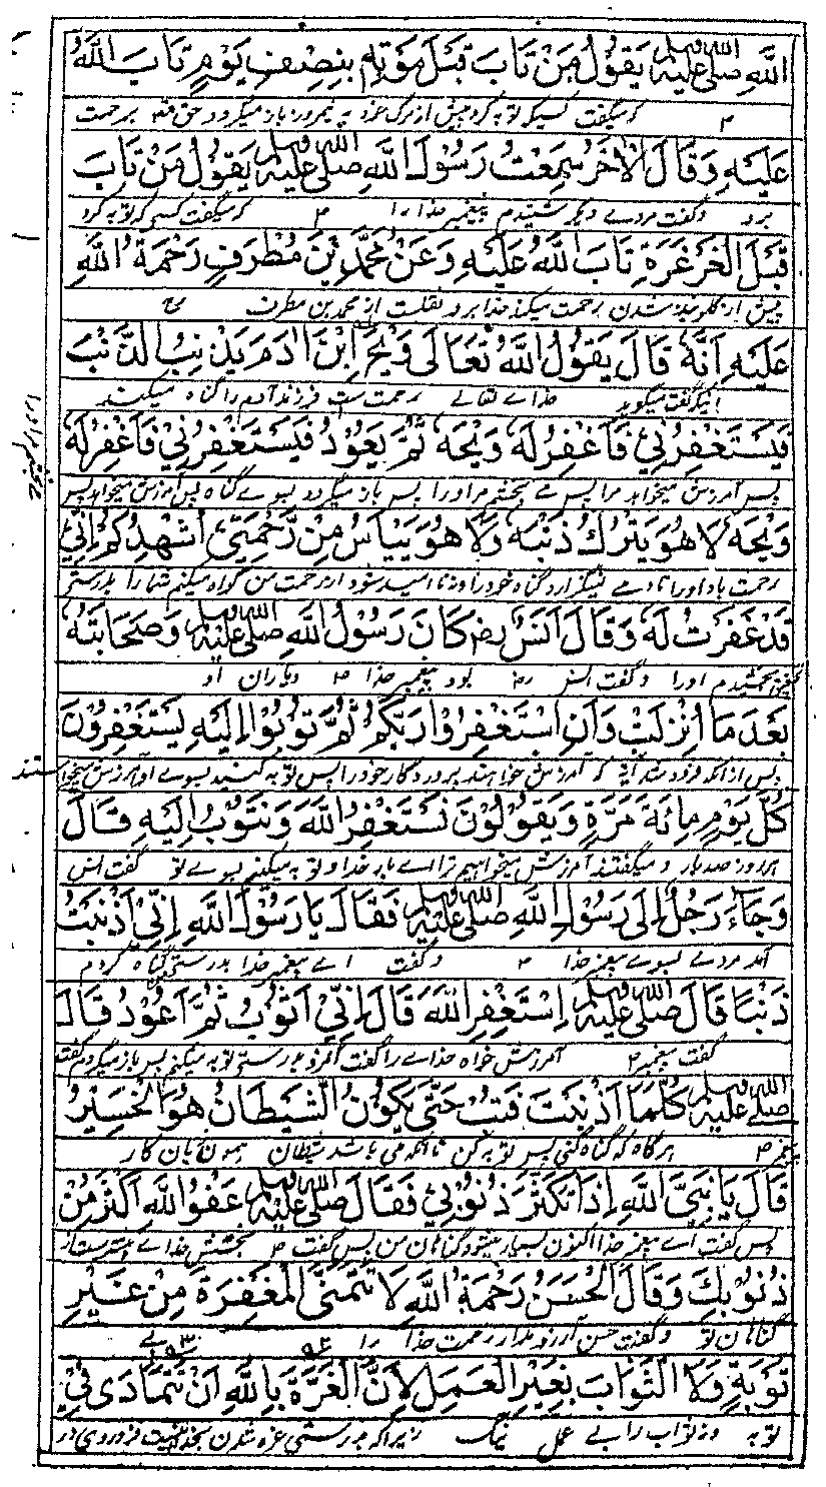 اللّٰهِ صلى الله عليه وسلم يَقُولُ مَنْ تَابَ قَبْلَ مَوْتِهِ بِنِصْفِ يَوْمٍ تَابَ اللّٰهُ
که میگفت کسیکه توبه کرد پیش از مرگ خود به نیمروز باز میگردد حق برحمت
عَلَيْهِ وَقَالَ لْاٰخَرُ سَمِعْتُ رَسُوْلَ اللّٰهِ صلى الله عليه وسلم يَقُوْلُ مَنْ تَابَ
برو وگفت مردے دیگر شنیدم پیغمبر خدا را که میگفت کسی که توبه کرد
قَبْلَ الْغَرْغَرَةِ تَابَ اللّٰهُ عَلَيْهِ وَعَنْ مُحَمَّدِ بْنِ مُطَرِّفٍ رَحْمَةُ اللّٰهِ
پیش از شدن برحمت میکند خدا برو نقلست از محمد بن مطرف
عَلَيْهِ اَنَّهٗ قَالَ يَقُوْلُ اللّٰهُ تَعَالٰى وَيْحَ ابْنَ اٰدَمَ يَذْنِبُ الذَّنْبَ
انکه گفت میگوید خداے تعالے رحمت فرزند آدم را گناه میکند
فَيَسْتَغْفِرُنِيْ فَاَغْفِرُ لَهٗ وَيْحَهٗ ثُمَّ يَعُوْدُ فَيَسْتَغْفِرُنِيْ فَاَغْفِرُ لَهٗ
پس آمرزش میخواهد مرا پس مے بخشم مر اورا پس باز میگردد بسوے گناه پس آمرزش میخواهد پس
وَيْحَهٗ لَا هُوَ يَتْرُكُ ذَنْبَهٗ وَلَا هُوَ يَيْاَسُ مِنْ رَّحْمَتِيْ اُشْهِدُكُمْ اِنِّيْ
رحمت باد اورا نمیگزارد گناه خود را ونه نا امید شود از رحمت من گواه میکنم شما را بدرستی
قَدْ غَفَرْتُ لَهٗ وَقَالَ اَنَسٌ رض كَانَ رَسُوْلُ اللّٰهِ صلى الله عليه وسلم وَصَحَابَتُهٗ
بخشیدم اورا وگفت انس رض بود پیغمبر خدا ویاران او
بَعْدَ مَا اُنْزِلَتْ وَاَنِ اسْتَغْفِرُوْا رَبَّكُمْ ثُمَّ تُوْبُوْا اِلَيْهِ يَسْتَغْفِرُوْنَ
پس از انکه فرود شد آیة که آمرزش خواهند پروردگار خود را پس توبه کنید بسوے او آمرزش میخواستند
كُلَّ يَوْمٍ مِائَةَ مَرَّةٍ وَيَقُوْلُوْنَ نَسْتَغْفِرُ اللّٰهَ وَنَتُوْبُ اِلَيْهِ قَالَ
هر روز صد بار و میگفتند آمرزش میخواهیم ترا اے بار خدا و توبه میکنیم بسوے تو گفت انس
وَجَاءَ رَجُلٌ اِلٰى رَسُوْلِ اللّٰهِ صلى الله عليه وسلم فَقَالَ يَا رَسُوْلَ اللّٰهِ اِنِّيْ اَذْنَبْتُ
آمد مردے بسوے پیغمبر خدا و گفت اے پیغمبر خدا بدرستی گناه کردم
ذَنْبًا قَالَ صلى الله عليه وسلم اِسْتَغْفِرِ اللّٰهَ قَالَ اِنِّيْ اَتُوْبُ ثُمَّ اَعُوْدُ قَالَ
گفت پیغمبر آمرزش خواه خداے را گفت بدرستی توبه میکنم پس باز میگردم گفت
صلى الله عليه وسلم كُلَّمَا اَذْنَبْتَ فَتُبْ حَتّٰى يَكُوْنَ الشَّيْطَانُ هُوَ الْخَسِيْرُ
پیغمبر هرگاه که گناه کنی پس توبه کن تا انکه می باشد شیطان همون زیان کار
قَالَ يَا نَبِيَّ اللّٰهِ اِذَا تَكْثُرَ ذُنُوْبِيْ فَقَالَ صلى الله عليه وسلم عَفْوُ اللّٰهِ اَكْثَرُ مِنْ
پس گفت اے پیغمبر خدا اکنون بسیار میشود گناهان من پس گفت بخشش خداے بیشتر ست از
ذُنُوْبِكَ وَقَالَ الْحَسَنُ رَحْمَةُ اللّٰهِ لَا تَتَمَنَّى الْمَغْفِرَةَ مِنْ غَيْرِ
گناهان تو وگفت حسن آرزو مدار رحمت خدا را بے
تَوْبَةٍ وَلَا الثَّوَابَ بِغَيْرِ الْعَمَلِ لِاَنَّ الْغَرَّةَ بِاللّٰهِ اَنْ تَتَمَادٰى فِيْ
توبه ونه ثواب را بے عمل نیک زیرا که بدرستی غره شدن